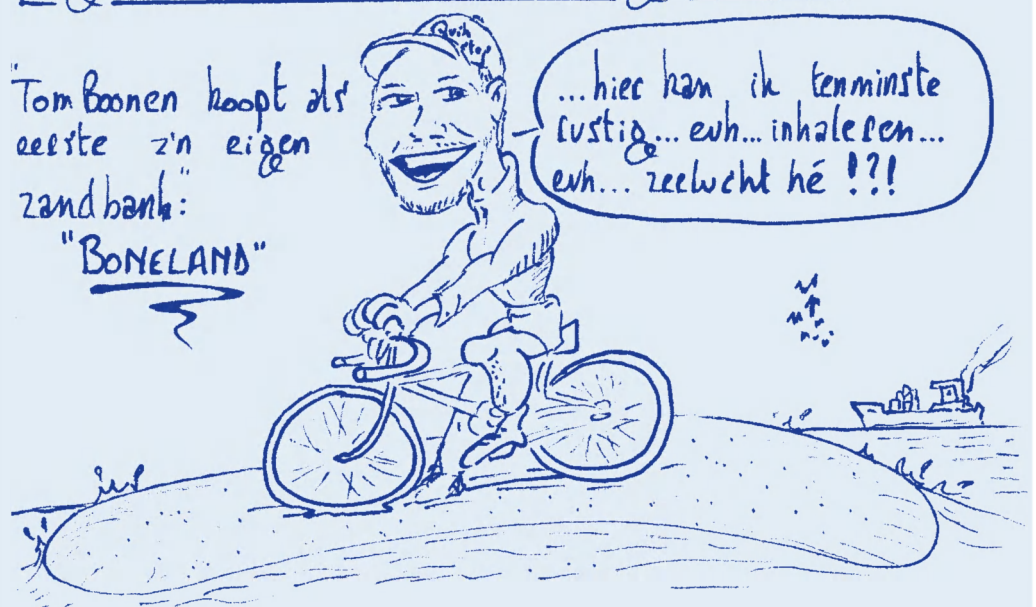 "Tom Boonen koopt als
eerste z'n eigen
zandbank:"
"BONELAND"
Quick
Step
...hier kan ik tenminste
rustig... euh... inhaleren...
euh... zeelucht hé !?!